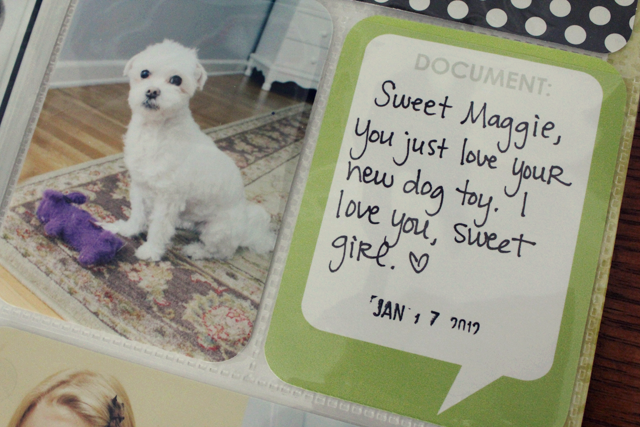 DOCUMENT:
Sweet Maggie,
you just love your
new dog toy. I
love you, sweet
girl. ♡
JAN 17 2012